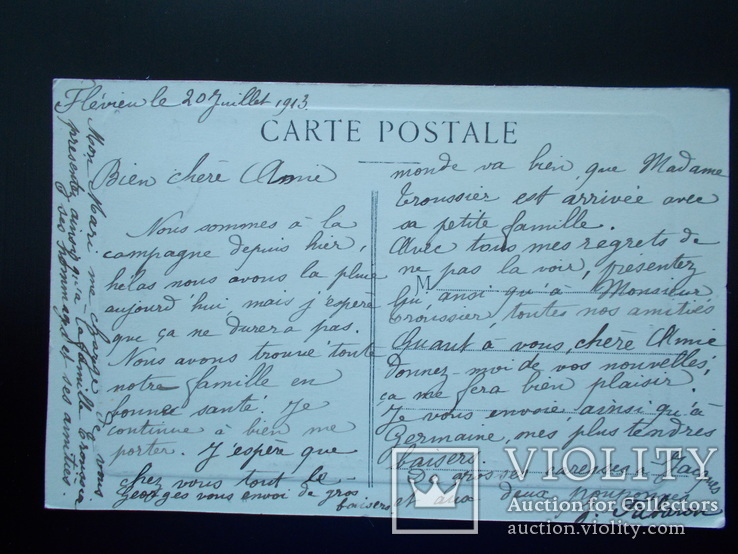 Flévieu le 20 Juillet 1913
CARTE POSTALE
Bien chère Amie
Nous sommes à la
campagne depuis hier,
hélas nous avons la pluie
aujourd'hui, mais j'espère
que ça ne durera pas.
Nous avons trouvé toute
notre famille en
bonne santé. Je
continue à bien me
porter. J'espère que
chez vous tout le
Georges vous envoi de gros
baisers
monde va bien, que Madame
Troussier est arrivée avec
sa petite famille.
Avec tous mes regrets de
ne pas la voir, présentez
M
lui, ainsi qu'à Monsieur
Troussier, toutes nos amitiés
Quant à vous, chère Amie
donnez-moi de vos nouvelles,
ça me fera bien plaisir
Je vous envoie, ainsi qu'à
Germaine, mes plus tendres
baisers
gros ses Jacques
et aux deux
J.
Mon Mari me charge de vous
présenter ainsi qu'à la famille Troussier
ses hommages et ses amitiés.
VIOLITY
Auction for Collectors
auction.violity.com